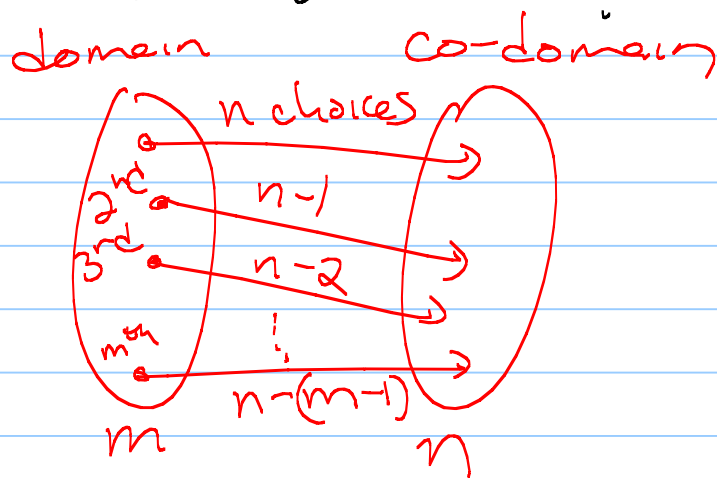 domain co-domain
n choices
2nd n-1
3rd n-2
⋮
mth n-(m-1)
m n